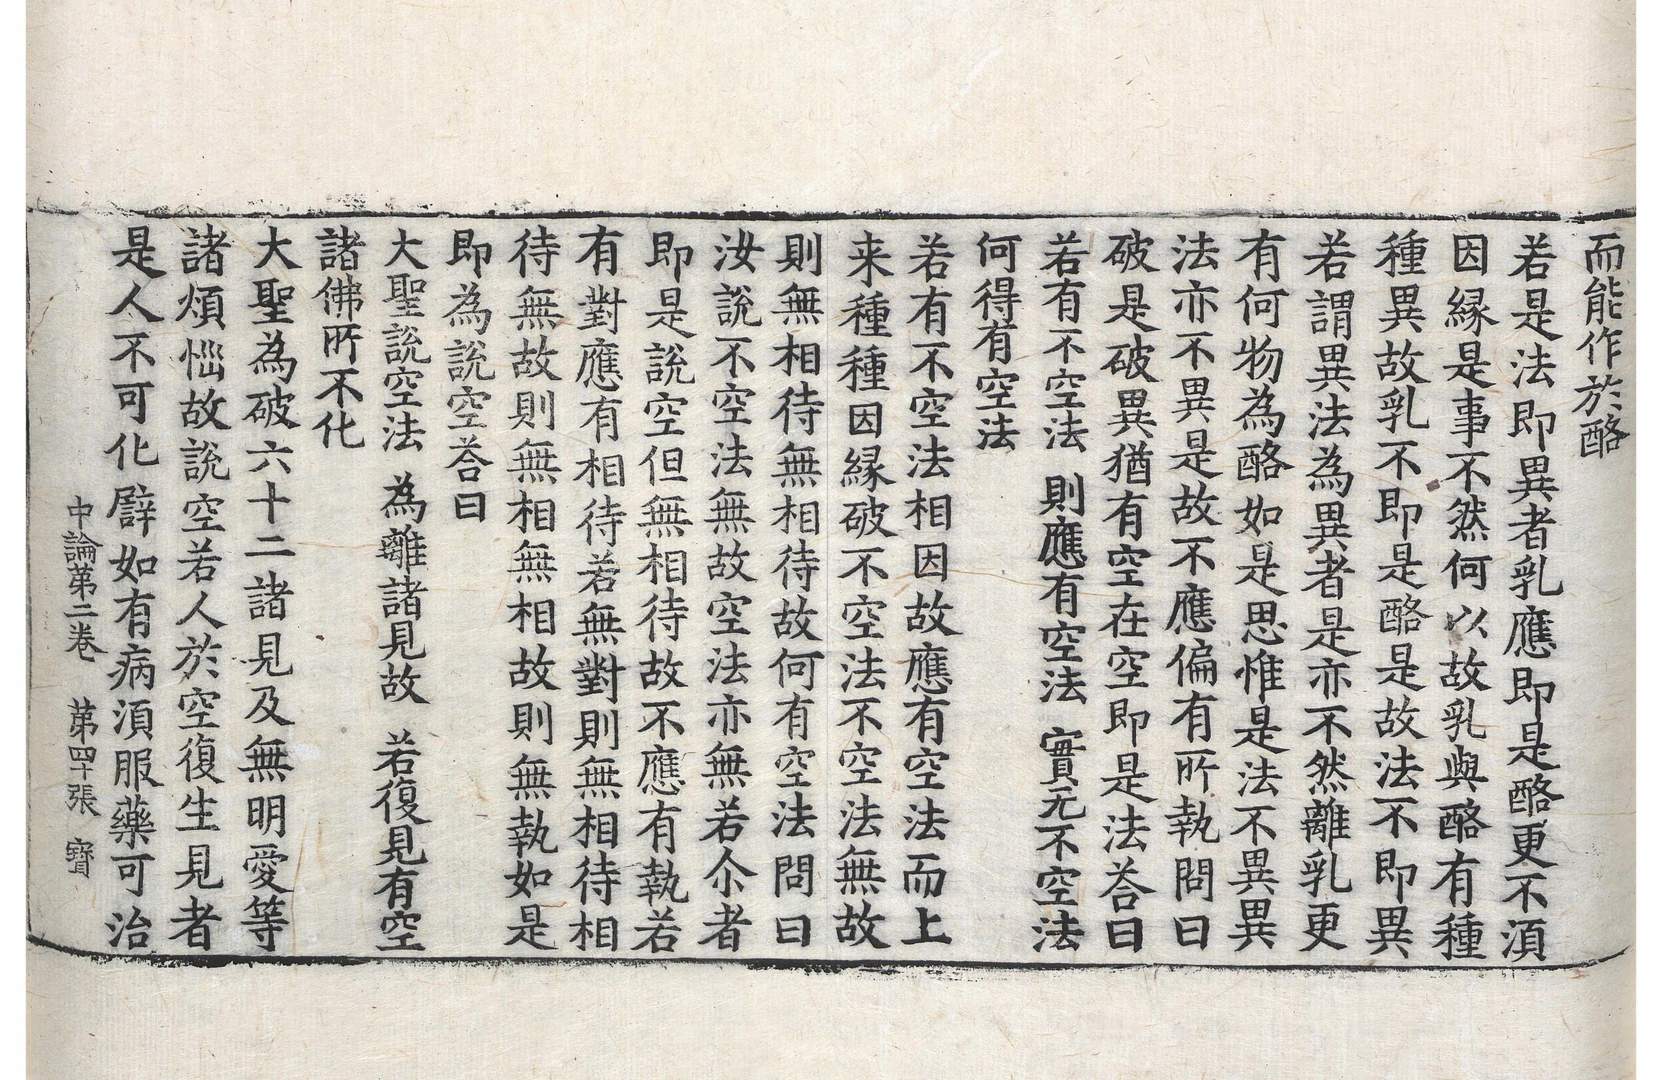 而能作於酪
若是法即異者乳應即是酪更不湏
因縁是事不然何以故乳與酪有種
種異故乳不即是酪是故法不即異
若謂異法為異者是亦不然離乳更
有何物為酪如是思惟是法不異異
法亦不異是故不應偏有所執問曰
破是破異猶有空在空即是法荅曰
若有不空法 則應有空法 實无不空法
何得有空法
若有不空法相因故應有空法而上
来種種因縁破不空法不空法無故
則無相待無相待故何有空法問曰
汝說不空法無故空法亦無若尒者
即是說空但無相待故不應有執若
有對應有相待若無對則無相待相
待無故則無相無相故則無執如是
即為說空荅曰
大聖說空法 為離諸見故 若復見有空
諸佛所不化
大聖為破六十二諸見及無明愛等
諸煩惱故說空若人於空復生見者
是人不可化譬如有病湏服藥可治
中論第二卷 第四十張 寳